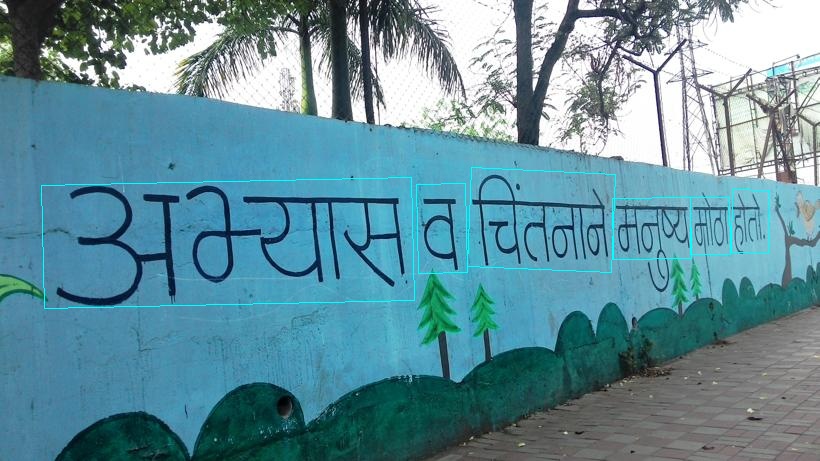 अभ्यास व चिंतनाने मनुष्य मोठा होतो.